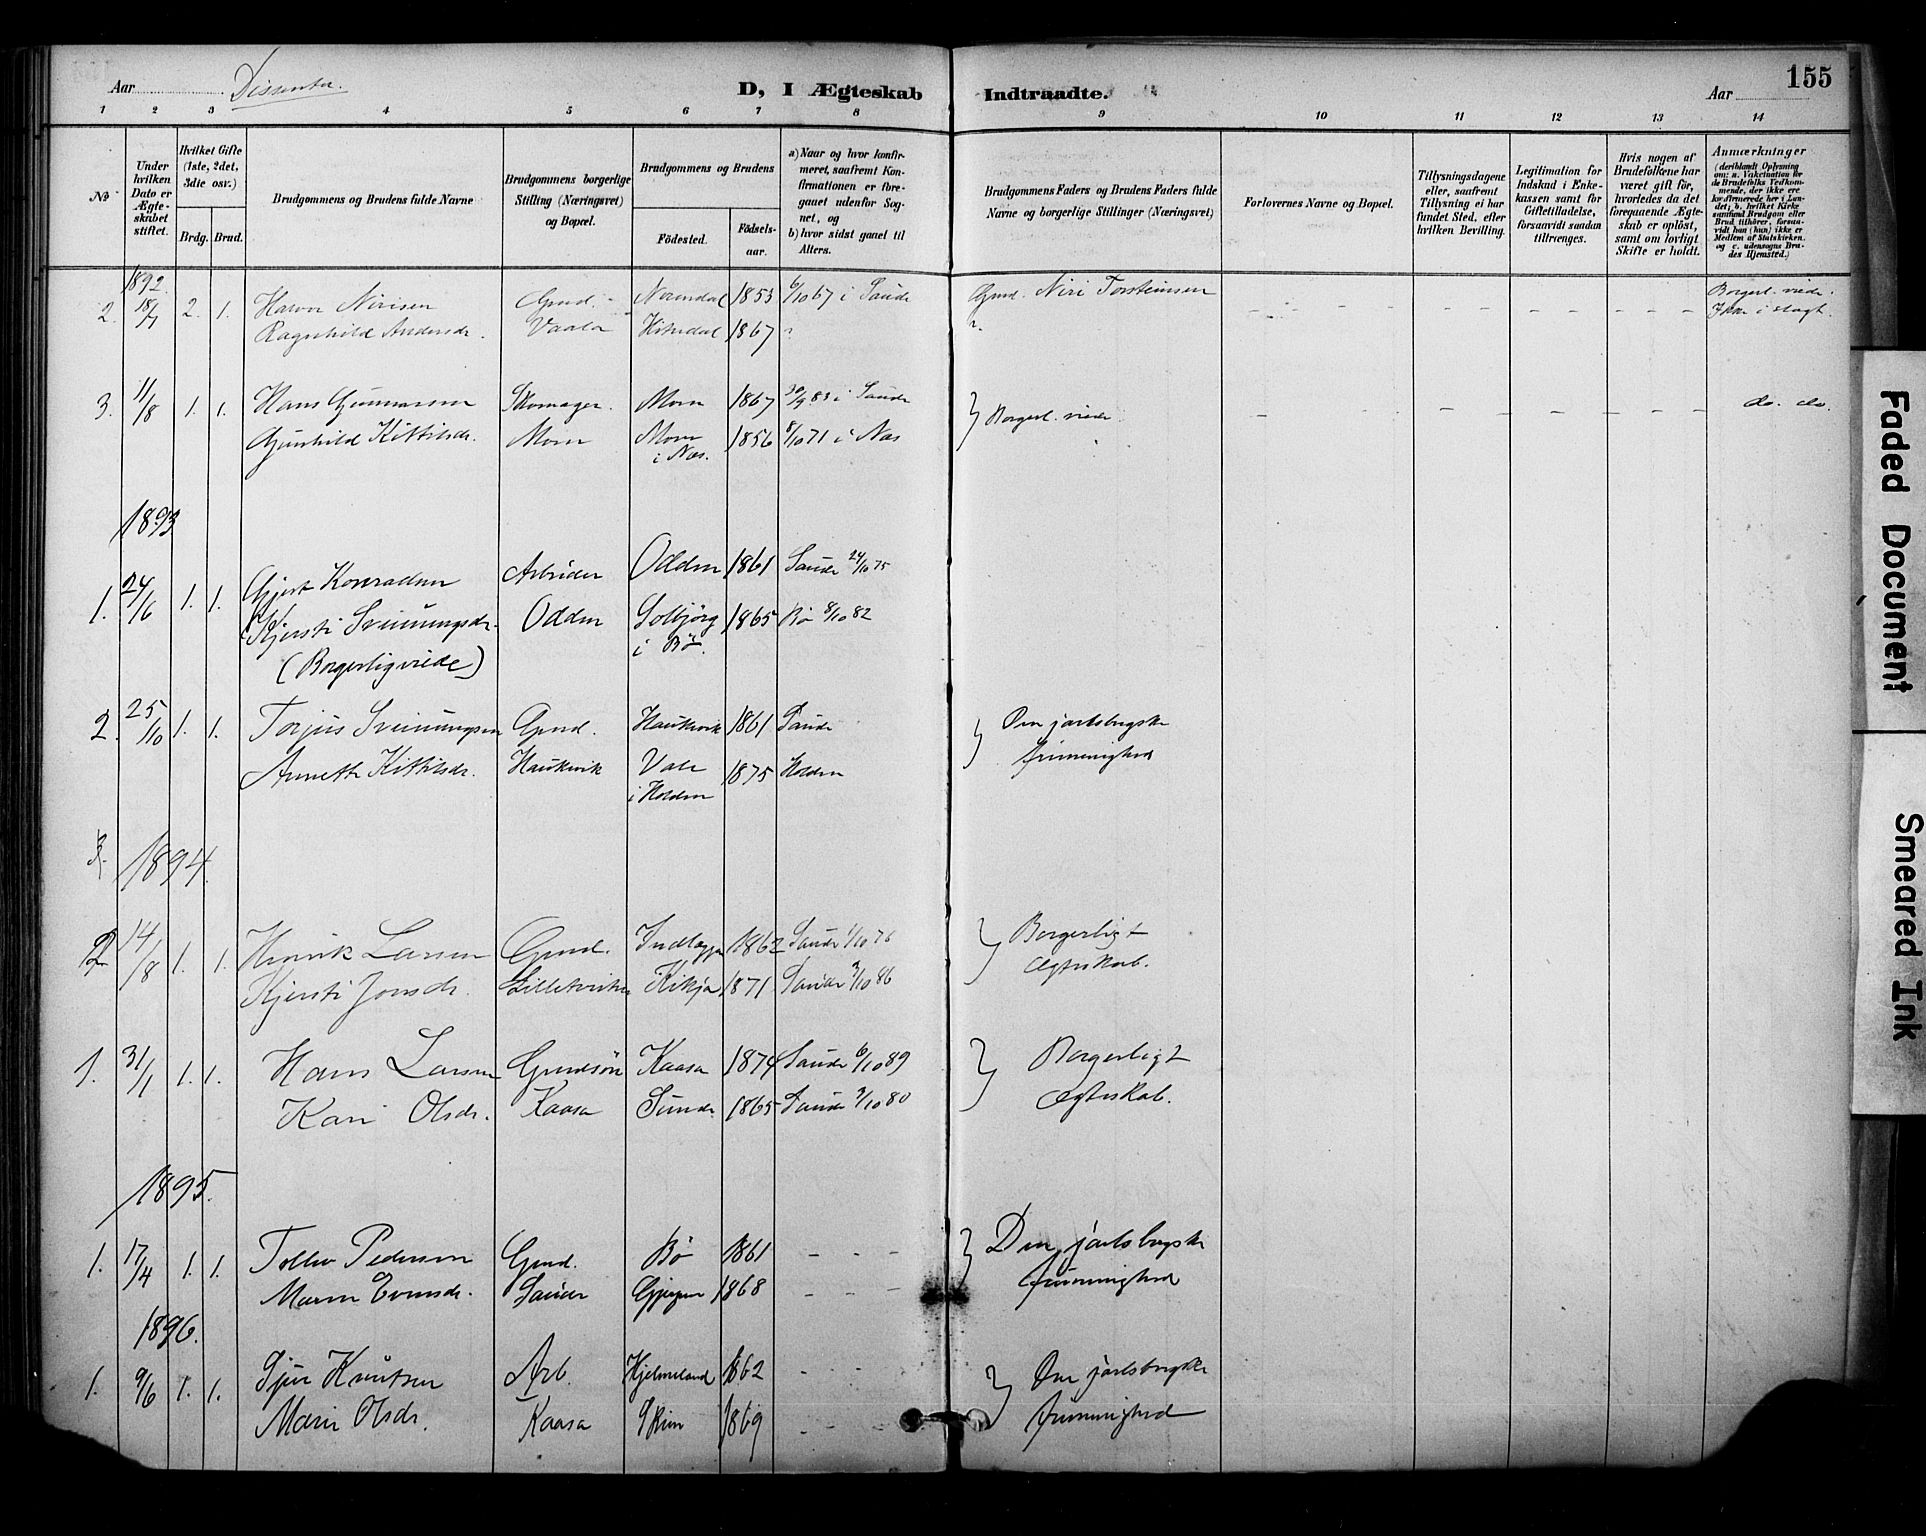 Aar Dissenter. D, I Ægteskab Indtraadte. Aar 155
1 2 3 4 5 6 7 8 9 10 11 12 13 14
No
Under hvilken Dato er Ægteskabet stiftet.
Hvilket Gifte (1ste, 2det, 3die osv.)
Brdg. Brud.
Brudgommens og Brudens fulde Navne
Brudgommens borgerlige Stilling (Næringsvei) og Bopæl.
Brudgommens og Brudens
Fødested. Fødselsaar.
a) Naar og hvor konfirmeret, saafremt Konfirmationen er foregaaet udenfor Sognet, og
b) hvor sidst gaaet til Alters.
Brudgommens Faders og Brudens Faders fulde Navne og borgerlige Stillinger (Næringsvei)
Forlovernes Navne og Bopæl.
Tillysningsdagene eller, saafremt Tillysning ei har fundet Sted, efter hvilken Bevilling.
Legitimation for Indskud i Enkekassen samt for Giftetilladelse, forsaavidt saadan tiltrænges.
Hvis nogen af Brudefolkene har været gift før, hvorledes da det foregaaende Ægteskab er opløst, samt om lovligt Skifte er holdt.
Anmærkninger (deriblandt Oplysning om: a. Vaksination for de Brudefolks Vedkommende, der ikke ere konfirmerede her i Landet; b. hvilket Kirkesamfund Brudgom eller Brud tilhører, forsaavidt han (hun) ikke er Medlem af Statskirken, og c. udensogns Brudes Hjemsted.)
1892
2. 18/7 2. 1. Halvor Nirisen Grnd. Normdal 1853 6/10 67 i Saude Grnd. Niri Torsteinsen Borgerl. viede.
Ragnhild Andersdr. Vaala Hitterdal 1867 ? ? Ikke i slægt.
3. 11/8 1. 1. Hans Gunnarsen Skomager. Moen 1867 30/9 83 i Saude } Borgerl. viede do. do.
Gunhild Kittilsdr. Moen Moen i Næs. 1856 8/10 71 i Næs
1893
1. 24/6 1. 1. Gjert Konradsen Arbeider Odden 1861 Saude 24/10 75
Kjersti Sveinungsdr. Odden Solbjørg i Bø. 1865 Bø 8/10 82
(Borgerlig viede)
2. 25/10 1. 1. Torjus Sveinungsen Grnd. Haukvik 1861 Saude } Den jarlsbergske frimenighed
Annette Kittilsdr. Haukvik Vale i Holden 1875 Holden
3. 1894.
2. 14/8 1. 1. Henrik Larsen Grnd. 1862 Saude 1/10 76 } Borgerligt Ægteskab.
Kjersti Jonsdr. 1871 Saude 3/10 86
1. 31/1 1. 1. Hans Larsen Grndsøn Kaasa 1874 Saude 6/10 89 } Borgerligt Ægteskab.
Kari Olsdr. Kaasa Sunde 1865 Saude 3/10 80
1895.
1. 17/4 1. 1. Tollev Pedersen Grnd. Bø 1861 - - - } Den jarlsbergske frimenighed
Maren Evensdr. Saude 1868 - - -
1896.
1. 9/6 1. 1. Sjur Knutsen Arb. Hjelmeland 1862 - - } Den jarlsbergske frimenighed
Maria Olsdr. Kaasa Skien 1869 - -
Faded Document
Smeared Ink